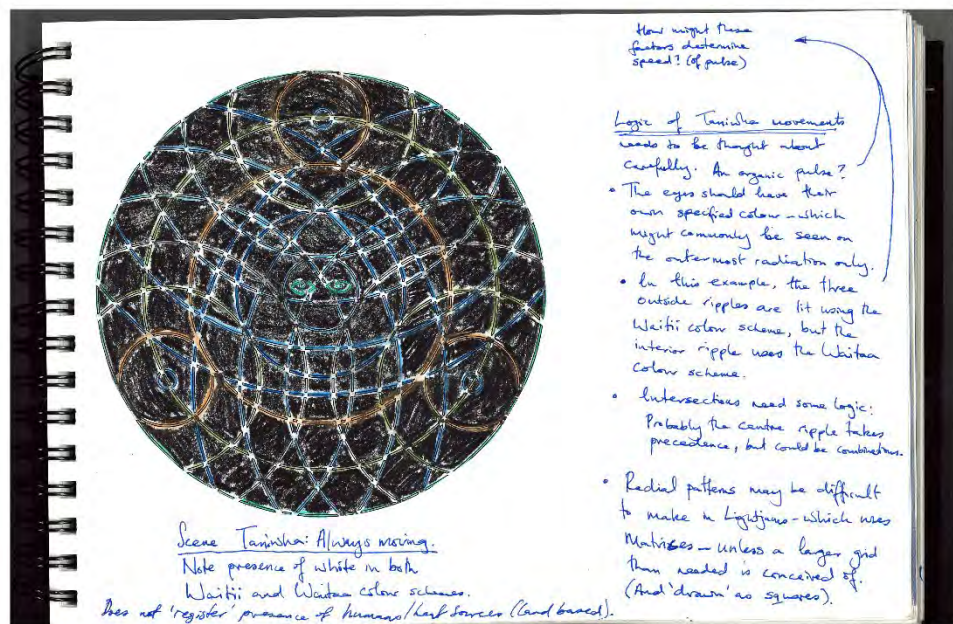 How might these
factors determine
speed? (of pulse)
Logic of Taniwha movements
needs to be thought about
carefully. An organic pulse?
• The eyes should have their
own specified colour – which
might commonly be seen on
the outermost radiation only.
• In this example, the three
outside ripples are lit using the
Waitii colour scheme, but the
interior ripple uses the Waitaa
Colour scheme.
• Intersections need some logic:
Probably the centre ripple takes
precedence, but could be combinations.
• Radial patterns may be difficult
to make in Lightjams – which uses
Matrixes – unless a larger grid
than needed is conceived of.
(And 'drawn' as squares).
Scene Taniwha: Always moving.
Note presence of white in both
Waitii and Waitaa colour schemes.
Does not 'register' presence of humans/heat sources (land based).